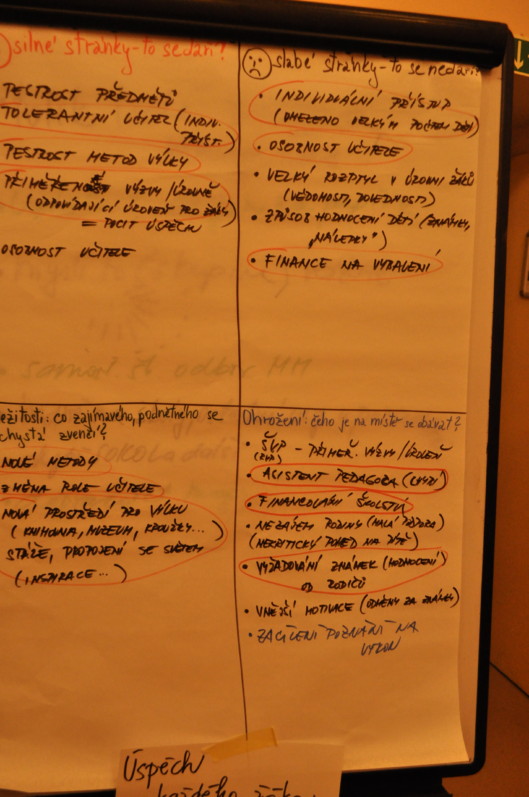 silné stránky - to se daří?
PESTROST PŘEDMĚTŮ
TOLERANTNÍ UČITEL (INDIV.
PŘÍST.)
PESTROST METOD VÝUKY
PŘIMĚŘENOST VÝZVY/ÚROVNĚ
(ODPOVÍDAJÍCÍ ÚROVEŇ PRO ŽÁKY)
= POCIT ÚSPĚCHU
OSOBNOST UČITELE
slabé stránky - to se nedaří?
• INDIVIDUÁLNÍ PŘÍSTUP
(OMEZENO VELKÝM POČTEM DĚTÍ)
• OSOBNOST UČITELE
• VELKÝ ROZPTYL V ÚROVNI ŽÁKŮ
(VĚDOMOSTI, DOVEDNOSTI)
• ZPŮSOB HODNOCENÍ DĚTÍ (ZNÁMKY,
„NÁLEPKY")
• FINANCE NA VYBAVENÍ
ežitosti: co zajímavého, podnětného se
chystá zvenčí?
NOVÉ METODY
ZMĚNA ROLE UČITELE
NOVÁ PROSTŘEDÍ PRO VÝUKU
(KNIHOVNA, MUZEUM, KROUŽKY...)
STÁŽE, PROPOJENÍ SE SVĚTEM
(INSPIRACE...)
Ohrožení: čeho je na místě se obávat?
• ŠVP - PŘIMĚŘ. VÝZVY/ÚROVEŇ
• ASISTENT PEDAGOGA (CHYBÍ)
• FINANCOVÁNÍ ŠKOLSTVÍ
• NEZÁJEM RODINY (MALÁ PODPORA)
(NEKRITICKÝ POHLED NA DÍTĚ)
• VYŽADOVÁNÍ ZNÁMEK (HODNOCENÍ)
OD RODIČŮ
• VNĚJŠÍ MOTIVACE (ODMĚNY ZA ZNÁMKY)
• ZACÍLENÍ POZNÁNÍ NA
VÝKON
Úspěch
každého žáka